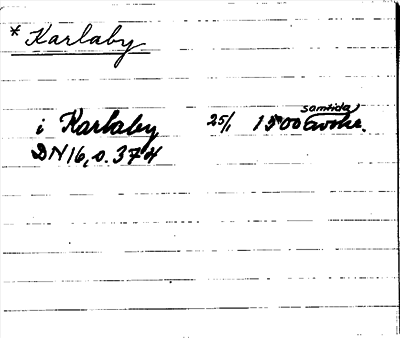 * Karlaby
i Karlaby 25/1 1500 samtida avskr.
DN 16, s. 374